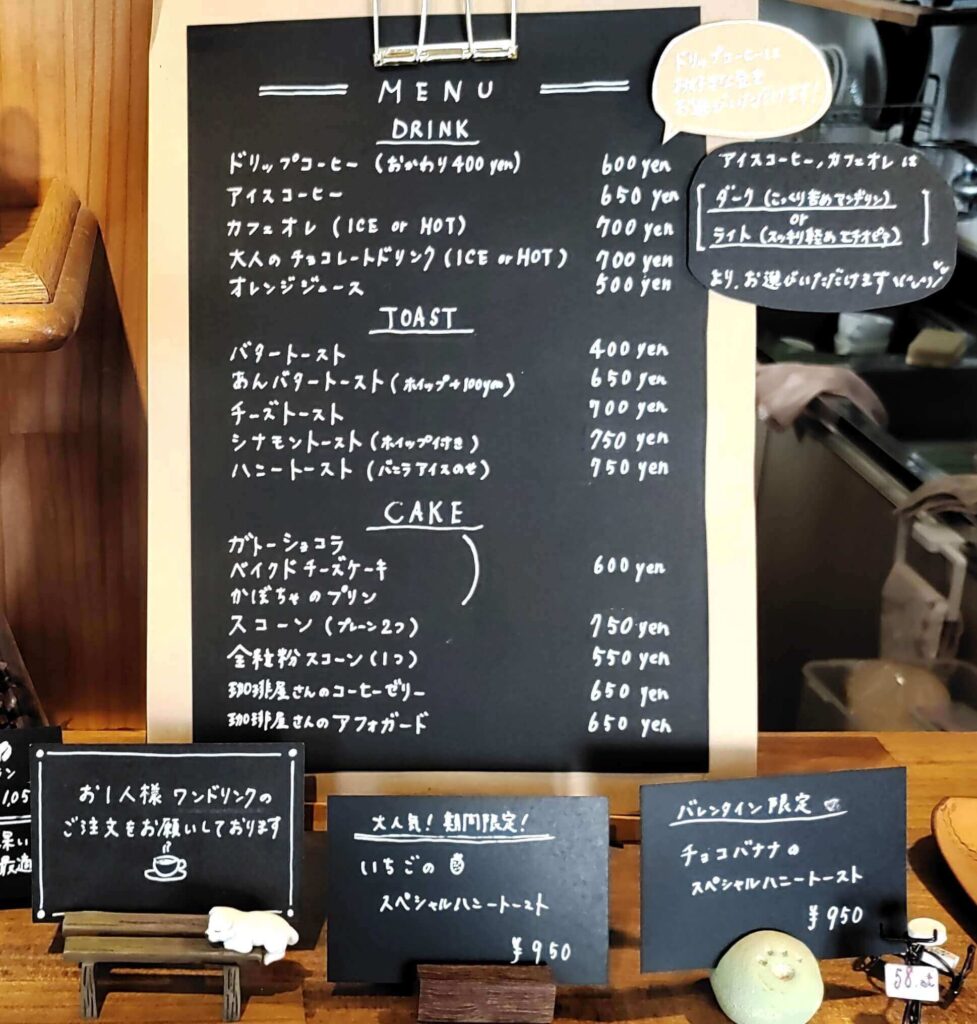 MENU
DRINK
ドリップコーヒー (おかわり400yen) 600 yen
アイスコーヒー 650 yen
カフェオレ (ICE or HOT) 700 yen
大人のチョコレートドリンク (ICE or HOT) 700 yen
オレンジジュース 500 yen
TOAST
バタートースト 400 yen
あんバタートースト (ホイップ+100yen) 650 yen
チーズトースト 700 yen
シナモントースト (ホイップ付き) 750 yen
ハニートースト (バニラアイスのせ) 750 yen
CAKE
ガトーショコラ
ベイクドチーズケーキ 600 yen
かぼちゃのプリン
スコーン (プレーン2つ) 750 yen
全粒粉スコーン (1つ) 550 yen
珈琲屋さんのコーヒーゼリー 650 yen
珈琲屋さんのアフォガード 650 yen
ドリップコーヒーは
お好きな豆を
お選びいただけます!
アイスコーヒー,カフェオレは
ダーク (こっくり苦めマンデリン)
or
ライト (スッキリ軽めエチオピア)
より、お選びいただけます\(^o^)/
お1人様 ワンドリンクの
ご注文をお願いしております
大人気! 期間限定!
いちごの
スペシャルハニートースト
¥950
バレンタイン限定
チョコバナナの
スペシャルハニートースト
¥950
ン
最適